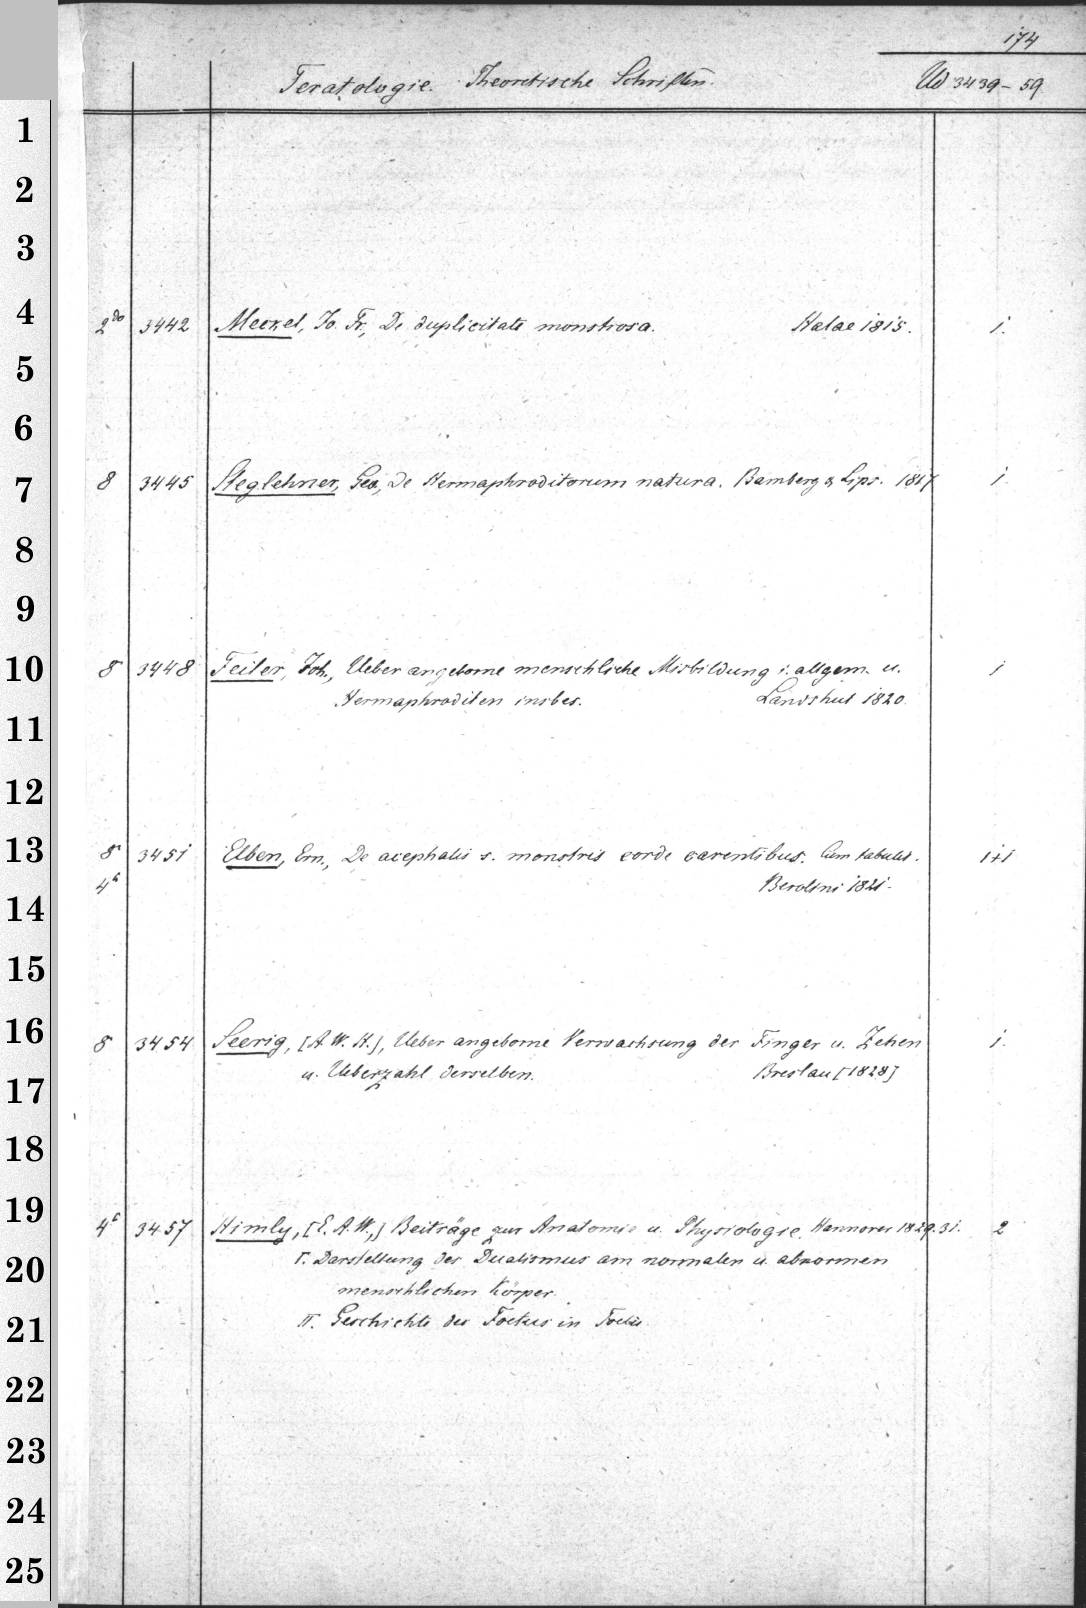 174
Teratologie. Theoretische Schriften. Ud 3439-59
1
2
3
4 2do 3442 Meckel, Jo. Fr., De duplicitate monstrosa. Halae 1815. 1.
5
6
7 8 3445 Steglehner, Geo., De Hermaphroditorum natura. Bamberg & Lips. 1817 1.
8
9
10 8 3448 Feiler, Joh., Ueber angeborne menschliche Misbildung i. allgem. u. 1
Hermaphroditen insbes. Landshut 1820.
11
12
13 8 3451 Elben, Ern., De acephalis s. monstris corde carentibus. Cum tabulis. 1+1
4t Berolini 1821.
14
15
16 8 3454 Seerig, [A. W. H.], Ueber angeborne Verwachsung der Finger u. Zehen 1.
u. Ueberzahl derselben. Breslau [1828]
17
18
19 4t 3457 Himly, [E. A. W.,] Beiträge zur Anatomie u. Physiologie. Hannover 1829.31. 2
20 I. Darstellung des Dualismus am normalen u. abnormen
menschlichen Körper.
21 II. Geschichte des Foetus in Foetu.
22
23
24
25